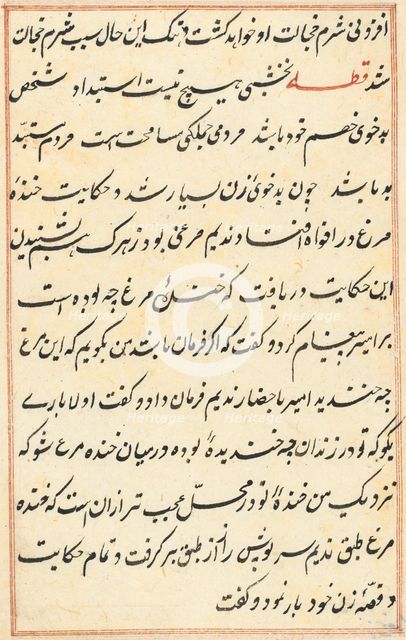 افزونی شرم خجالت او خواهد گشت و تنک این حال سبب شرم خجالت
شد قطعه نخشبی هیچ نیست استبداد شخص
بدخوی خصم خود باشد مردمی جملکی مسامحت است مردم مستبد
بد باشد چون بدخوئ زن بسیار شد و حکایت خندهٔ
مرغ در افواه افتاد ندیم مرغی بود زیرک بشنیدن
این حکایت دریافت که خندهٔ مرغ چه بوده است
بر امیر پیغام کرد و کفت که اکر فرمان باشد من بکویم که این مرغ
چه خندید امیر باحضار ندیم فرمان داد و کفت اولا بارے
بکو که تو در زندان چه خندیدهٔ بوده درمیان خنده مرغ شو که
نزدیک من خندهٔ تو در محل عجیب تر ازان است که خنده
مرغ طبق ندیم سرپوش راز از طبق برکرفت و تمام حکایت
و قصهٔ زن خود باز نمود و کفت
Heritage
Heritage
Heritage
Heritage